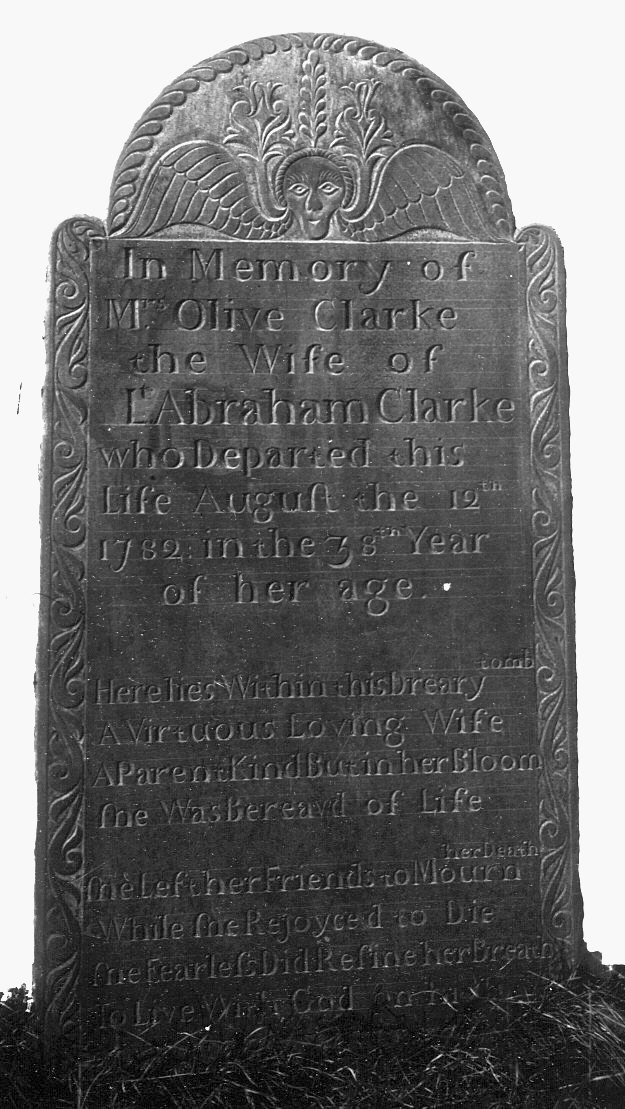 In Memory of
Mrs. Olive Clarke
the Wife of
Lt. Abraham Clarke
who Departed this
Life Auguſt the 12th
1782 in the 38th Year
of her age.
Here lies Within this Dreary tomb
A Virtuous Loving Wife
A Parent Kind But in her Bloom
ſhe Was Bereav'd of Life
ſhe Left her Friends to Mourn her Death
While ſhe Rejoyced to Die
ſhe Fearleſs Did Reſine her Breath
To Live With God on